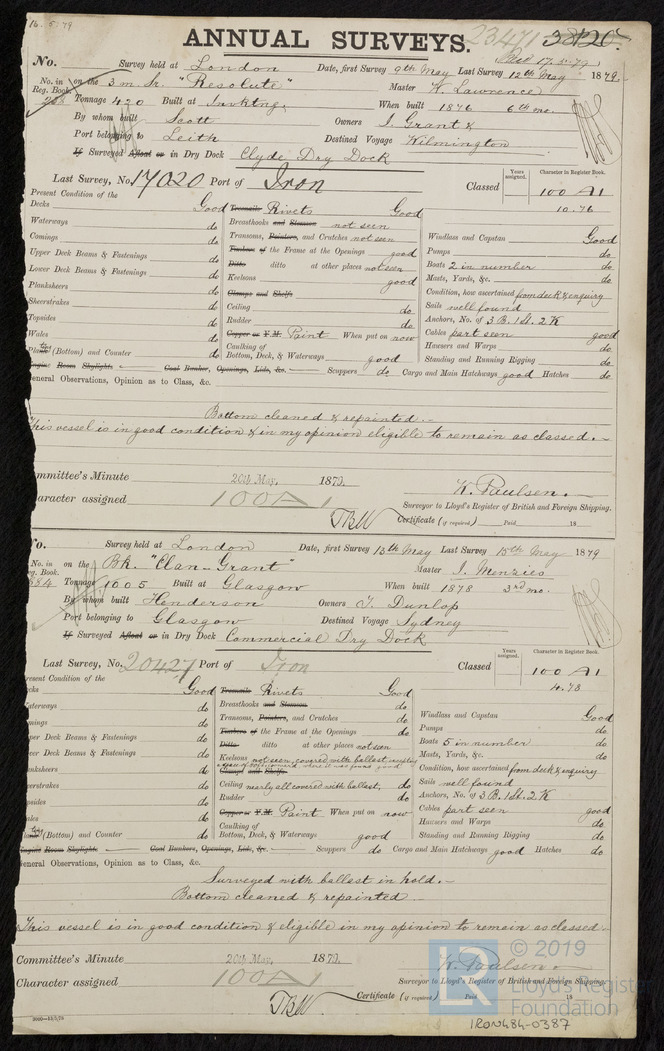 16.5.79
ANNUAL SURVEYS. 23471 38120.
No. Survey held at London Date, first Survey 9th May Last Survey 12th May 1879.
No. in Reg. Book. on the 3 m Sr. "Resolute" Master W. Lawrence
Tonnage 420 Built at When built 1876 6th mo.
By whom built Scott Owners I. Grant &
Port belonging to Leith Destined Voyage Wilmington
If Surveyed Afloat or in Dry Dock Clyde Dry Dock
Last Survey, No. 17020 Port of Iron Classed Years assigned. Character in Register Book. 100 A1
10.76
Present Condition of the
Decks Good
Waterways do
Comings do
Upper Deck Beams & Fastenings do
Lower Deck Beams & Fastenings do
Planksheers do
Sheerstrakes do
Topsides do
Wales do
(Bottom) and Counter do
Engine Room Skylights Coal Bunker, Openings, Lids, &c.
Treenails Rivets Good
Breasthooks and Stemson not seen
Transoms, Pointers, and Crutches not seen
Timbers of the Frame at the Openings good
Ditto ditto at other places not seen
Keelsons good
Clamps and Shelfs
Ceiling do
Rudder do
Copper or Y.M. Paint When put on now
Caulking of Bottom, Deck, & Waterways good
Scuppers do Cargo and Main Hatchways good Hatches do
Windlass and Capstan Good
Pumps do
Boats 2 in number do
Masts, Yards, &c. do
Condition, how ascertained from deck & enquiry
Sails well found
Anchors, No. of 3 B. 1 St. 2 K
Cables part seen good
Hawsers and Warps do
Standing and Running Rigging do
General Observations, Opinion as to Class, &c.
Bottom cleaned & repainted.
This vessel is in good condition & in my opinion eligible to remain as classed.
Committee's Minute 20th May, 1879.
Character assigned 100 A1
W. Paulsen.
Surveyor to Lloyd's Register of British and Foreign Shipping.
Certificate (if required) Paid 18
No. Survey held at London Date, first Survey 13th May Last Survey 15th May 1879
No. in Reg. Book. on the Bk. "Clan-Grant" Master I. Menzies
584 Tonnage 1005 Built at Glasgow When built 1878 3rd mo.
By whom built Henderson Owners T. Dunlop
Port belonging to Glasgow Destined Voyage Sydney
If Surveyed Afloat or in Dry Dock Commercial Dry Dock
Last Survey, No. 20427 Port of Iron Classed Years assigned. Character in Register Book. 100 A1
4.78
Present Condition of the
Decks Good
Waterways do
Comings do
Upper Deck Beams & Fastenings do
Lower Deck Beams & Fastenings do
Planksheers do
Sheerstrakes do
Topsides do
Wales do
(Bottom) and Counter do
Engine Room Skylights Coal Bunkers, Openings, Lids, &c.
Treenails Rivets Good
Breasthooks and Stemson do
Transoms, Pointers, and Crutches do
Timbers of the Frame at the Openings do
Ditto ditto at other places not seen
Keelsons not seen, covered with ballast,
Clamps and Shelfs
Ceiling nearly all covered with ballast, do
Rudder do
Copper or Y.M. Paint When put on now
Caulking of Bottom, Deck, & Waterways good
Scuppers do Cargo and Main Hatchways good Hatches do
Windlass and Capstan Good
Pumps do
Boats 5 in number do
Masts, Yards, &c. do
Condition, how ascertained from deck & enquiry
Sails well found
Anchors, No. of 3 B. 1 St. 2 K
Cables part seen good
Hawsers and Warps do
Standing and Running Rigging do
General Observations, Opinion as to Class, &c.
Surveyed with ballast in hold.
Bottom cleaned & repainted
This vessel is in good condition & eligible in my opinion to remain as classed
Committee's Minute 20th May, 1879.
Character assigned 100 A1
W. Paulsen.
Surveyor to Lloyd's Register of British and Foreign Shipping.
Certificate (if required) Paid 18
LR © 2019
Lloyd's Register
Foundation
IRON484-0387